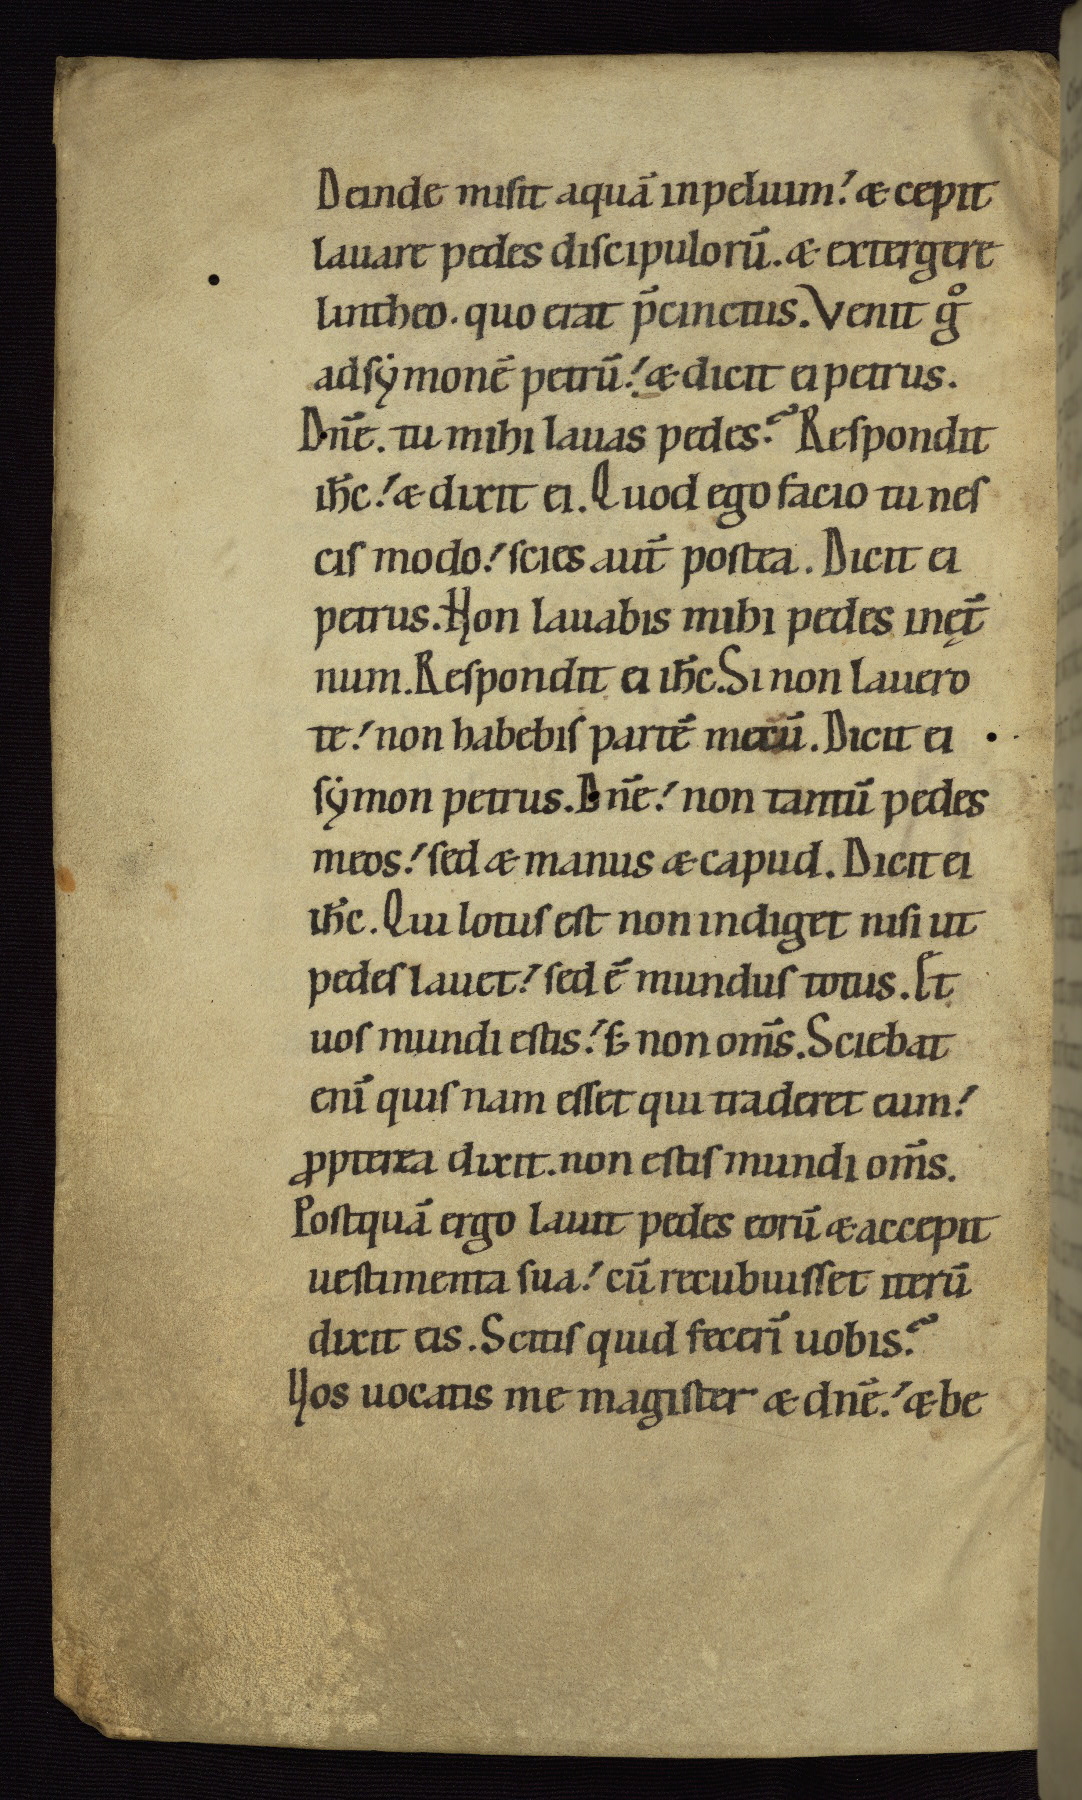 Deinde misit aquā in peluim! & cepit
lauare pedes discipulorū. & extergere
lintheo. quo erat p̄cinctus. Venit gͦ
ad sẏmonē petrū! & dicit ei petrus.
Dn̄e. tu mihi lauas pedes? Respondit
ih̄c! & dixit ei. Quod ego facio tu nes
cis modo! scies aut̄ postea. Dicit ei
petrus. Non lauabis mihi pedes in ęt̄
num. Respondit ei ih̄c. Si non lauero
te! non habebis partē mecū. Dicit ei
sẏmon petrus. Dn̄e! non tantū pedes
meos! sed & manus & capud. Dicit ei
ih̄c. Qui lotus est non indiget nisi ut
pedes lauet! sed ē mundus totus. Et
uos mundi estis! s; non om̄s. Sciebat
eni̅ quis nam esset qui traderet eum!
ꝓpterea dixit. non estis mundi om̄s.
Postquā ergo lauit pedes eorū & accepit
uestimenta sua! cū recubuisset iterū
dixit eis. Scitis quid feceri̅ uobis?
Uos uocatis me magister & dn̄e! & be